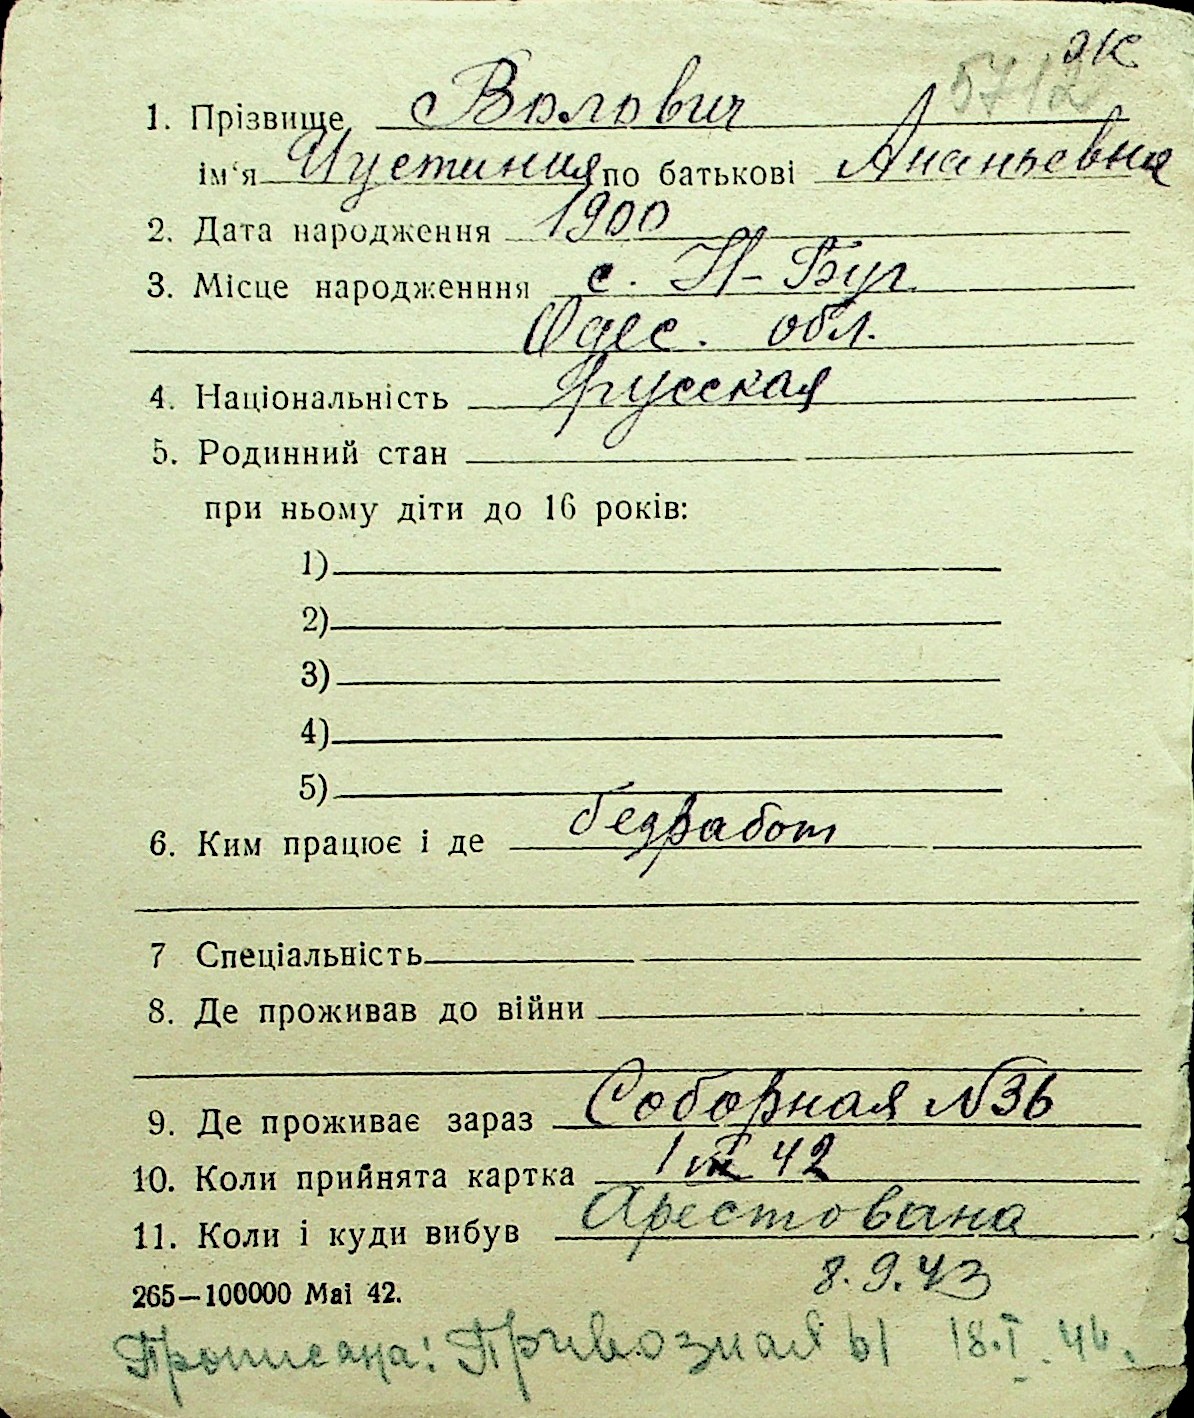 ж
5712
1. Прізвище Волович
ім'я Иустиния по батькові Ананьевна
2. Дата народження 1900
3. Місце народженння с. Н-Буг
Одес. обл.
4. Національність русская
5. Родинний стан
при ньому діти до 16 років:
1)
2)
3)
4)
5)
6. Ким працює і де безработ
7 Спеціальність
8. Де проживав до війни
9. Де проживає зараз Соборная №36
10. Коли прийнята картка 1 42
11. Коли і куди вибув Арестована
8.9.43
265—100000 Mai 42.
Прописана: Привозная 61 18.I.